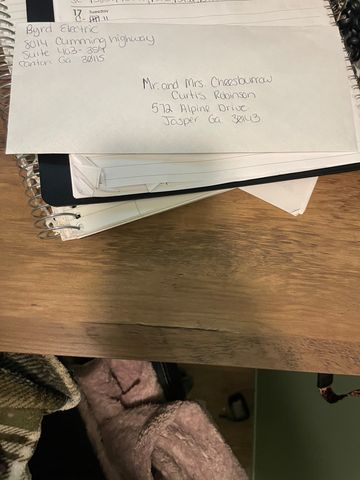 17 Tuesday
Byrd Electric
8014 Cumming highway
Suite 403-359
Canton Ga 30115
Mr. and Mrs. Cheesburrow
Curtis Robinson
572 Alpine Drive
Jasper Ga 30143